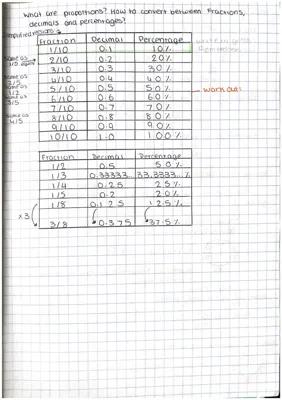 what are proportions? How to convert between Fractions,
decimals and percentages?
Fraction Decimal Percentage
1/10 0.1 10%
2/10 0.2 20%
3/10 0.3 30%
4/10 0.4 40%
5/10 0.5 50%
6/10 0.6 60%
7/10 0.7 70%
8/10 0.8 80%
9/10 0.9 90%
10/10 1.0 100%
same as
1/5
same as
2/5
same as
1/2
same as
3/5
same as
4/5
work out
Fraction Decimal Percentage
1/2 0.5 50%
1/3 0.33333... 33.3333...%
1/4 0.25 25%
1/5 0.2 20%
1/8 0.125 12.5%
x3
3/8 0.375 37.5%